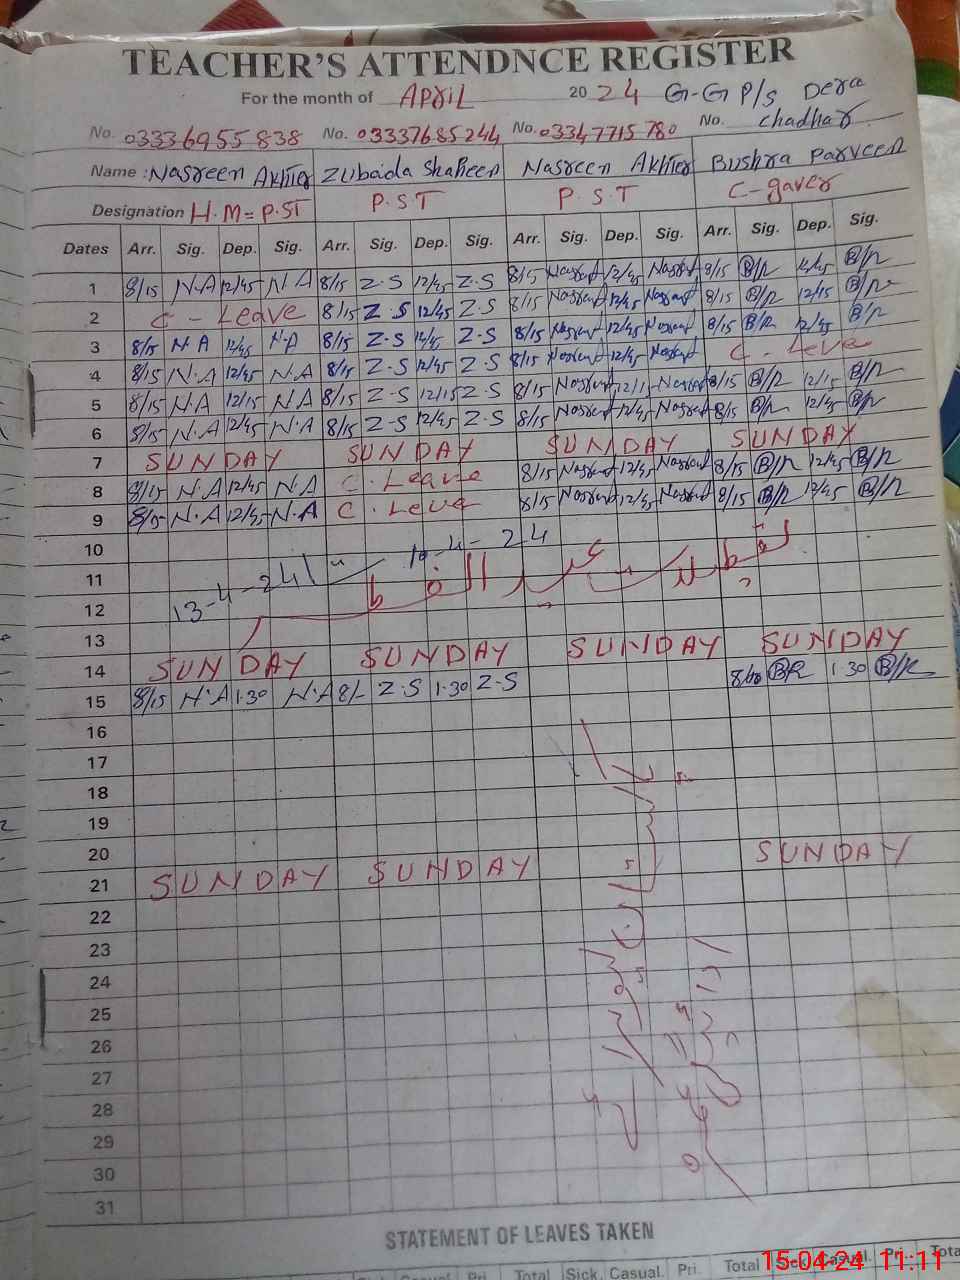 TEACHER'S ATTENDNCE REGISTER
For the month of April 2024 G-G P/s Dera
No. 03336955838 No. 03337685244 No. 03347715780 No. chadhar
Name : Nasreen Akhter Zubaida Shaheen Nasreen Akhter Bushra Parveen
Designation H.M=P.ST P.S.T P.S.T C-gaver
Dates Arr. Sig. Dep. Sig. Arr. Sig. Dep. Sig. Arr. Sig. Dep. Sig. Arr. Sig. Dep. Sig.
1 8/15 N.A 12/45 N.A 8/15 Z.S 12/45 Z.S 8/15 12/45 8/15 B/R 12/45 B/R
2 C - Leave 8/15 Z.S 12/45 Z.S 8/15 12/45 8/15 B/R 12/15 B/R
3 8/15 N.A 12/45 N.A 8/15 Z.S 12/45 Z.S 8/15 12/45 8/15 B/R 12/45 B/R
4 8/15 N.A 12/45 N.A 8/15 Z.S 12/45 Z.S 8/15 12/45 C - Leve
5 8/15 N.A 12/15 N.A 8/15 Z.S 12/15 Z.S 8/15 12/15 8/15 B/R 12/15 B/R
6 8/15 N.A 12/45 N.A 8/15 Z.S 12/45 Z.S 8/15 12/45 8/15 B/R 12/45 B/R
7 SUNDAY SUNDAY SUNDAY SUNDAY
8 8/15 N.A 12/45 N.A C. Leave 8/15 12/45 8/15 B/R 12/45 B/R
9 8/15 N.A 12/45 N.A C. Leve 8/15 12/45 8/15 B/R 12/45 B/R
10 تعطیلات عید الفطر 10-4-24
11
12 13-4-24
13
14 SUNDAY SUNDAY SUNDAY SUNDAY
15 8/15 N.A 1.30 N.A 8/- Z.S 1.30 Z.S BR 1.30 B/R
16
17
18
19
20
21 SUNDAY SUNDAY SUNDAY
22
23
24
25
26
27
28
29
30
31
STATEMENT OF LEAVES TAKEN
Casual. Pri. Total Sick. Casual. Pri. Total Sick. Casual. Pri. Total
15-04-24 11:11